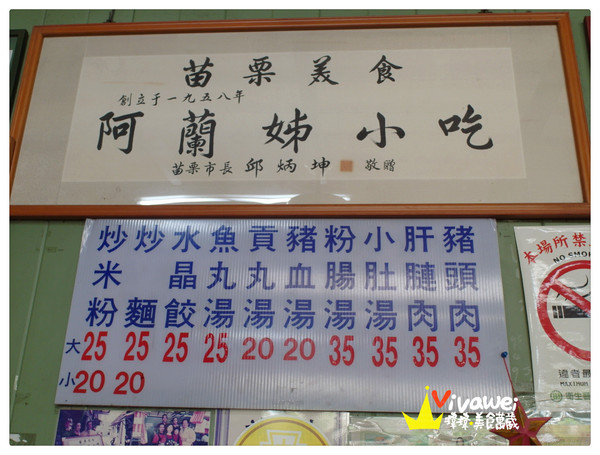 苗栗美食
創立于一九五八年
阿蘭姊小吃
苗栗市長 邱炳坤 敬贈
炒米粉 大25 小20
炒麵 25 20
水晶餃 25
魚丸湯 25
貢丸湯 20
豬血湯 20
粉腸湯 35
小肚湯 35
肝 肉 35
豬頭肉 35
本場所禁
NO SMO
違者最
MAXIMUM
衛生署
Vivawei
美食